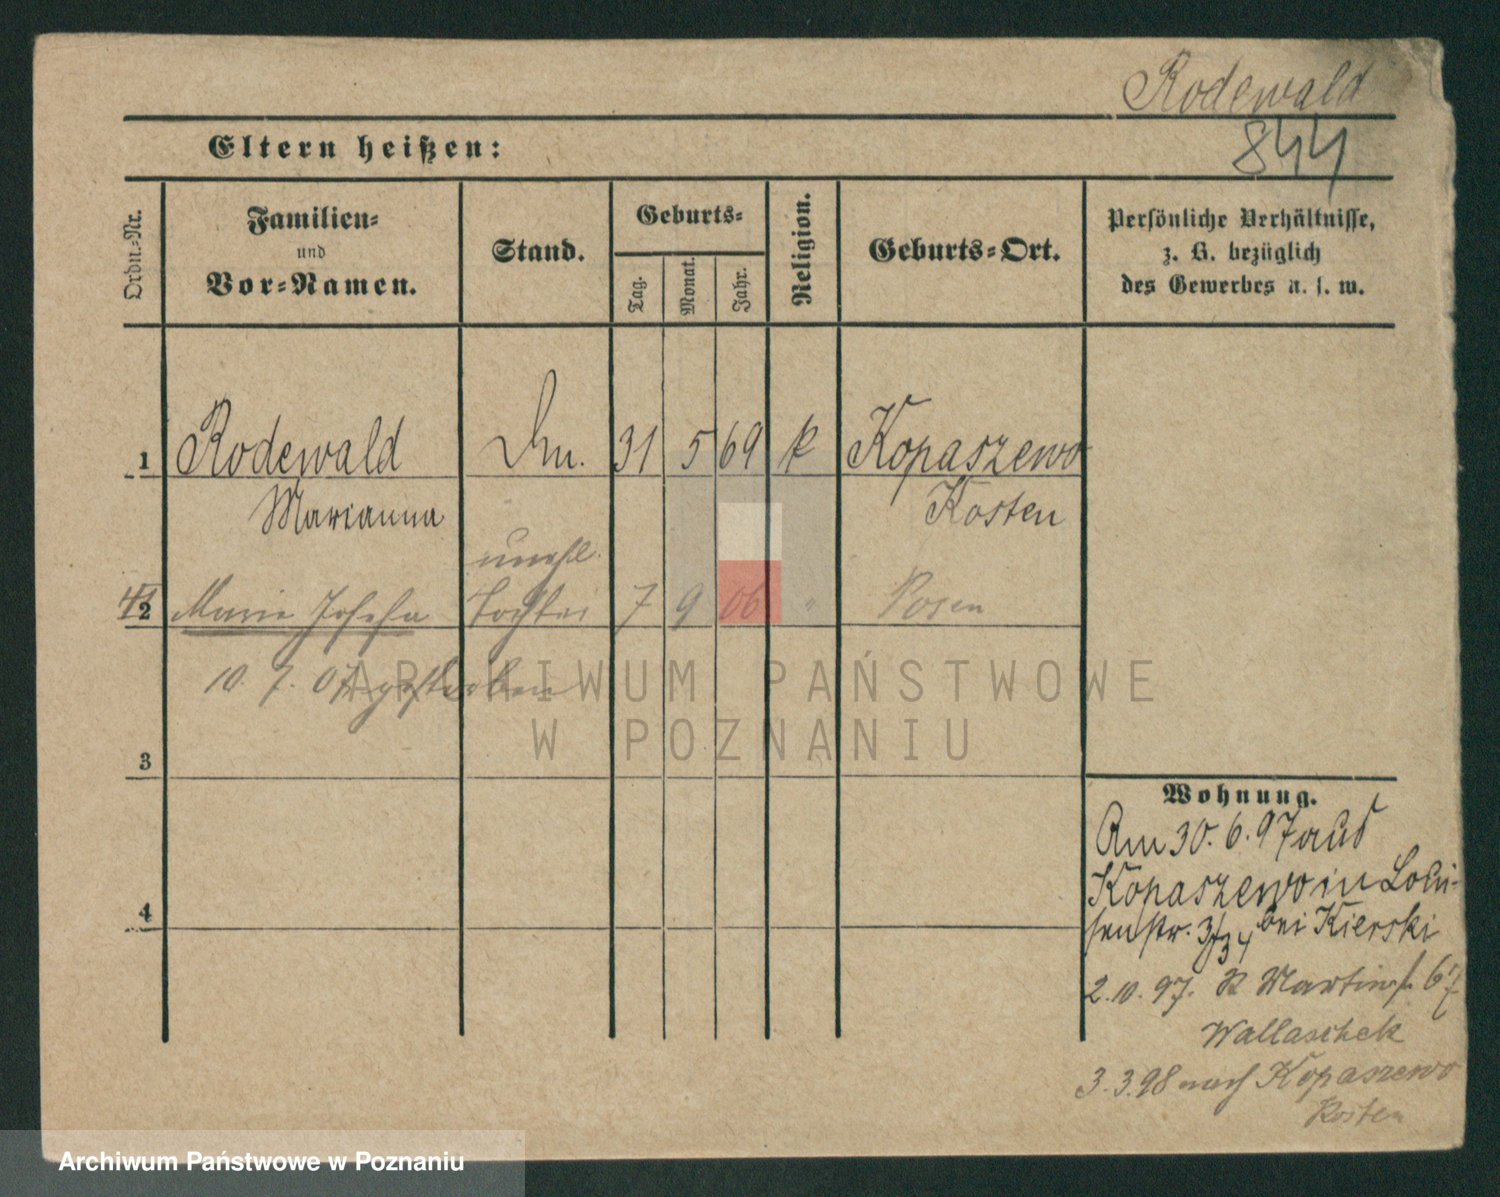 Rodewald
844
Eltern heißen:
Ordn.-Nr.
Familien-
und
Vor-Namen.
Stand.
Geburts-
Tag.
Monat.
Jahr.
Religion.
Geburts-Ort.
Persönliche Verhältnisse,
z. B. bezüglich
des Gewerbes u. s. w.
1 Rodewald 31 5 69 k Kopaszewo
Marianna Kosten
unehl.
2 Marie Josefa Tochter 7 9 06 " Posen
10. 7. 07 gestorben
ARCHIWUM PAŃSTWOWE
W POZNANIU
3
4
Wohnung.
Am 30. 6. 97 aus
Kopaszewo in Loui-
senstr. bei Kierski
2. 10. 97. St Martinstr. 67
Wallaschek
3. 3. 98 nach Kopaszewo
Kosten
Archiwum Państwowe w Poznaniu